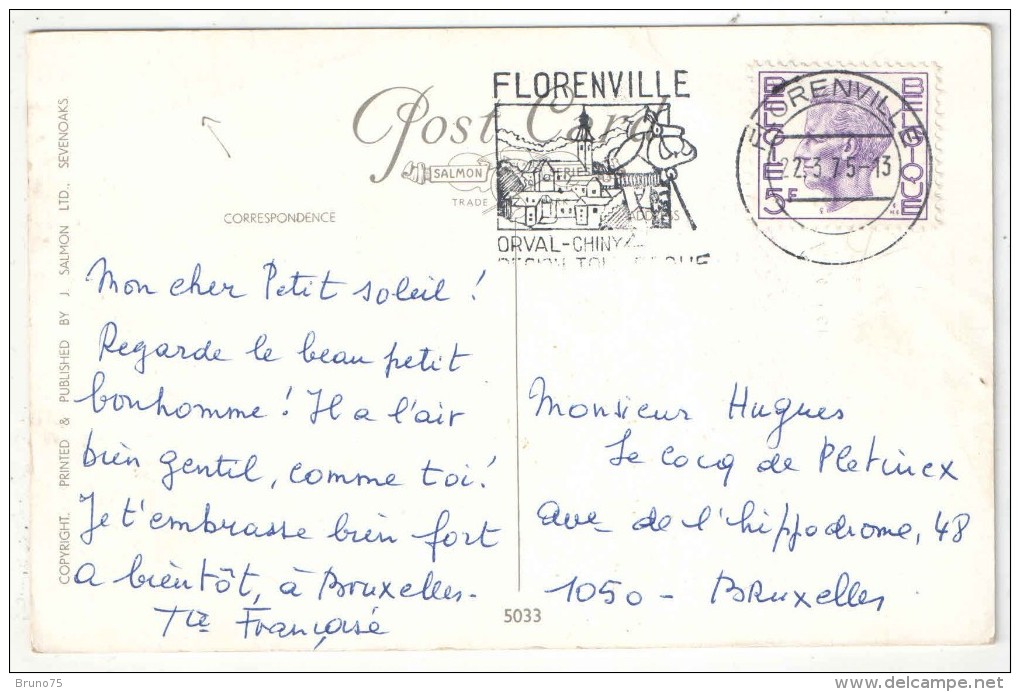 FLORENVILLE
ORVAL-CHINY
BELGIE BELGIQUE
5F
FLORENVILLE
22-3 75-13
Post Card
SALMON
TRADE
CORRESPONDENCE
ADDRESS
COPYRIGHT. PRINTED & PUBLISHED BY J. SALMON LTD. SEVENOAKS
Mon cher Petit soleil !
Regarde le beau petit
bonhomme ! Il a l'air
bien gentil, comme toi !
Je t'embrasse bien fort
A bientôt, à Bruxelles.
Tte Françoise
5033
Monsieur Hugues
Le Cocq de Pletincx
ave de l'hippodrome, 48
1050 - BRUxelles
Bruno75
www.delcampe.net